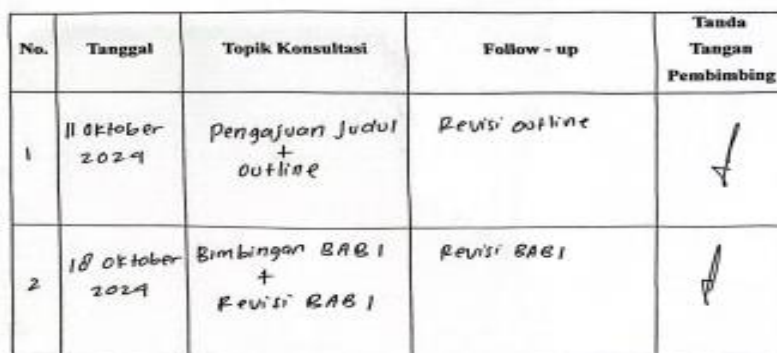 No. Tanggal Topik Konsultasi Follow - up Tanda Tangan Pembimbing
1 11 Oktober 2024 Pengajuan Judul + Outline Revisi Outline
2 18 Oktober 2024 Bimbingan BAB 1 + Revisi BAB 1 Revisi BAB 1